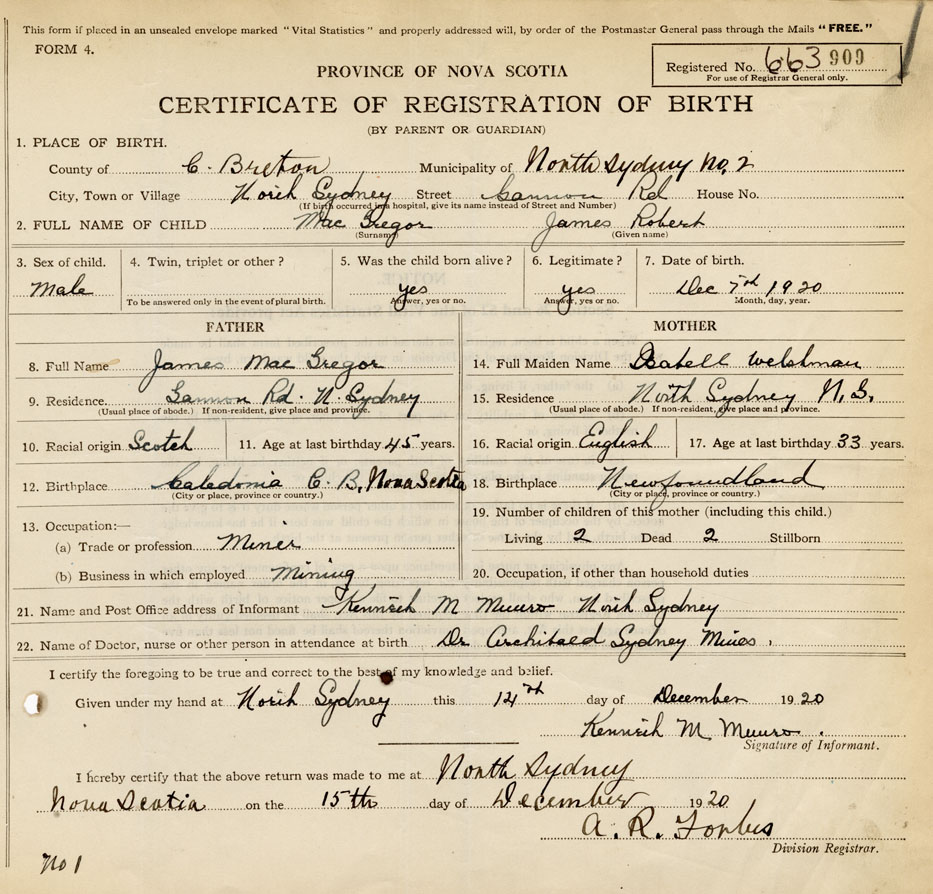 This form if placed in an unsealed envelope marked "Vital Statistics" and properly addressed will, by order of the Postmaster General pass through the Mails "FREE."
FORM 4.
Registered No. 663 909
For use of Registrar General only.
PROVINCE OF NOVA SCOTIA
CERTIFICATE OF REGISTRATION OF BIRTH
(BY PARENT OR GUARDIAN)
1. PLACE OF BIRTH.
County of C. Breton Municipality of North Sydney No. 2
City, Town or Village North Sydney Street Gannon Rd House No.
(If birth occurred in a hospital, give its name instead of Street and Number)
2. FULL NAME OF CHILD Mac Gregor James Robert
(Surname) (Given name)
3. Sex of child. 4. Twin, triplet or other? 5. Was the child born alive? 6. Legitimate? 7. Date of birth.
Male yes yes Dec 7th 1920
To be answered only in the event of plural birth. Answer, yes or no. Answer, yes or no. Month, day, year.
FATHER MOTHER
8. Full Name James Mac Gregor 14. Full Maiden Name Isabell Welshman
9. Residence Gannon Rd. N. Sydney 15. Residence North Sydney N.S.
(Usual place of abode.) If non-resident, give place and province. (Usual place of abode.) If non-resident, give place and province.
10. Racial origin Scotch 11. Age at last birthday 45 years. 16. Racial origin English 17. Age at last birthday 33 years.
12. Birthplace Caledonia C. B, Nova Scotia 18. Birthplace Newfoundland
(City or place, province or country.) (City or place, province or country.)
13. Occupation:— 19. Number of children of this mother (including this child.)
(a) Trade or profession Miner Living 2 Dead 2 Stillborn
(b) Business in which employed Mining 20. Occupation, if other than household duties
21. Name and Post Office address of Informant Kenneth M Munro North Sydney
22. Name of Doctor, nurse or other person in attendance at birth Dr Archibald Sydney Mines.
I certify the foregoing to be true and correct to the best of my knowledge and belief.
Given under my hand at North Sydney this 14th day of December 1920
Kenneth M Munro.
Signature of Informant.
I hereby certify that the above return was made to me at North Sydney
Nova Scotia on the 15th day of December 1920
A. R. Forbes
Division Registrar.
No 1